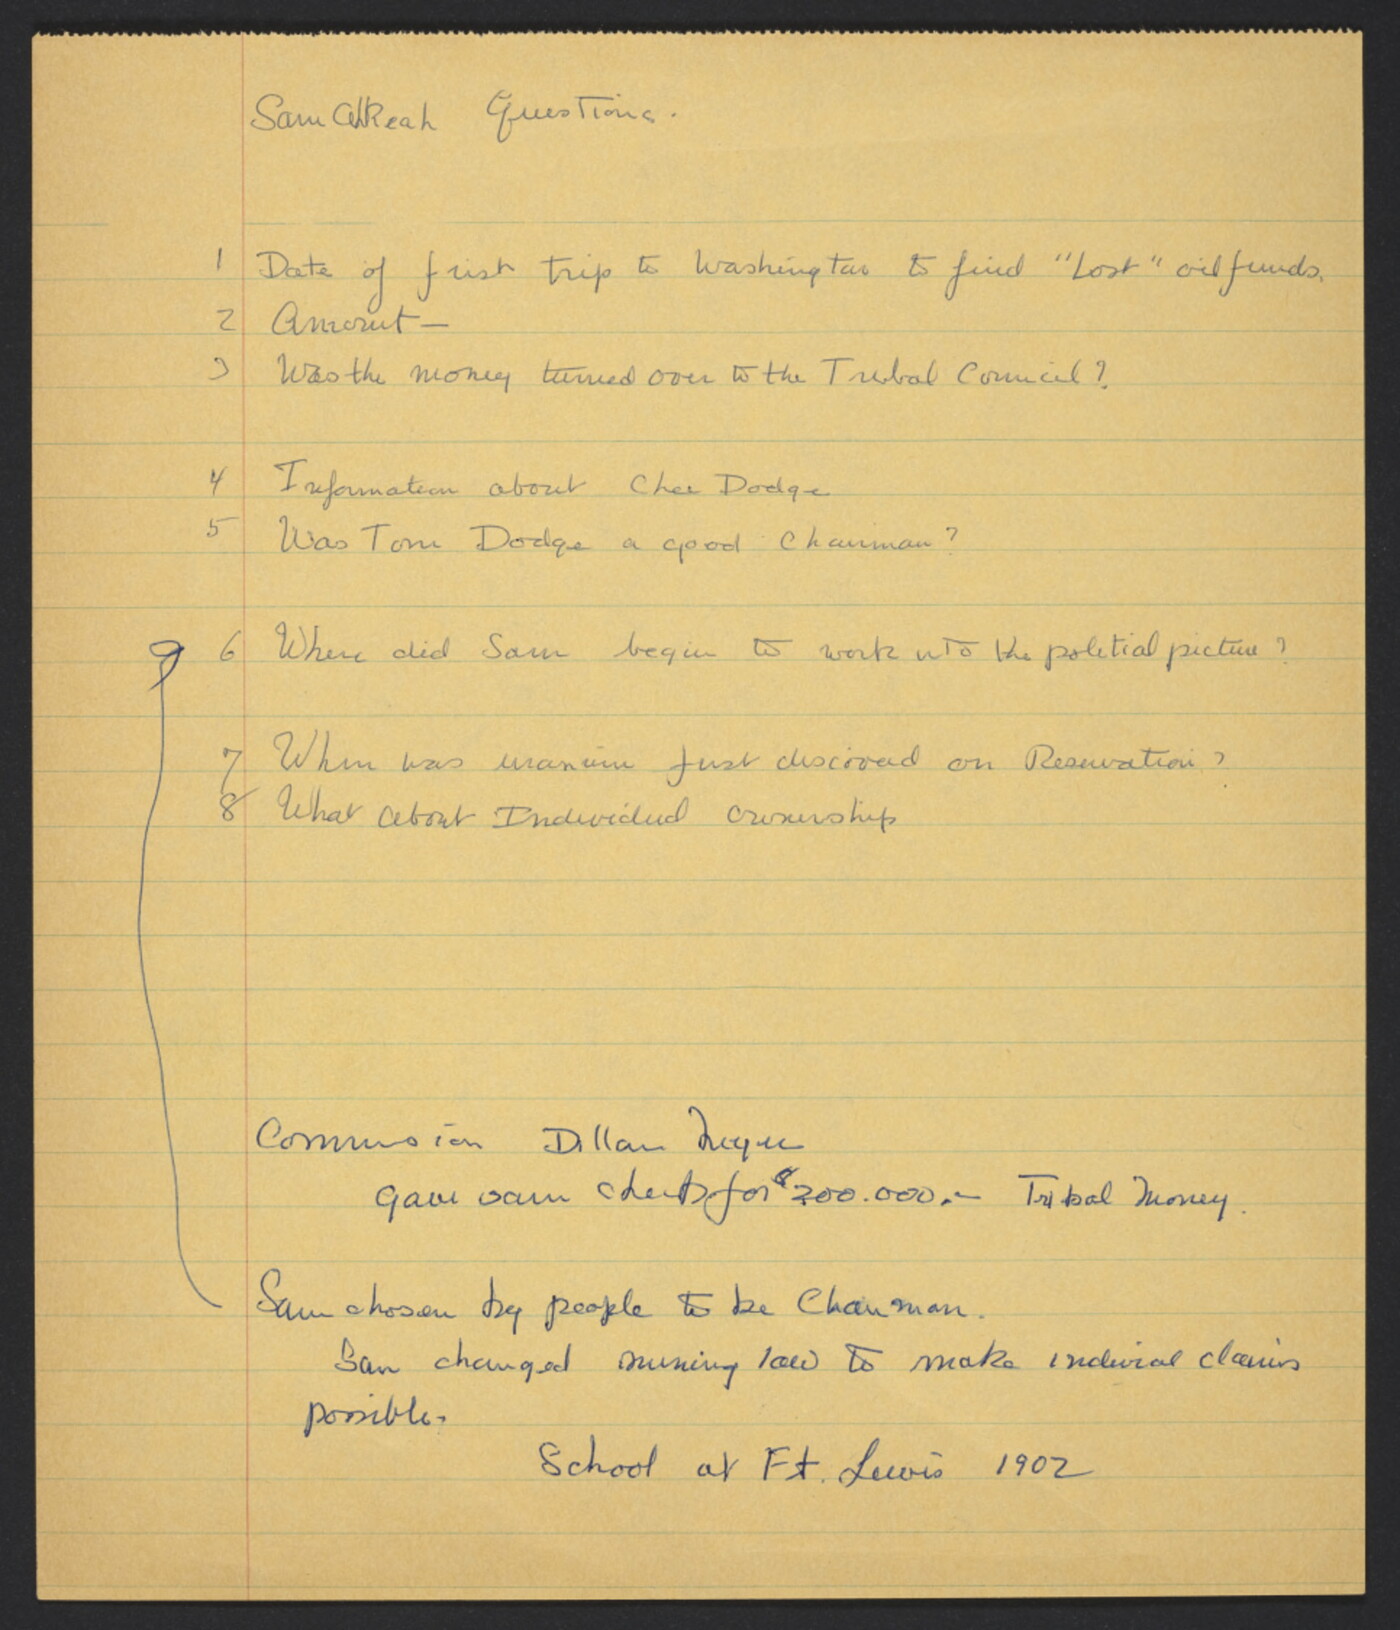 Sam AhKeah Questions.
1 Date of first trip to Washington to find "Lost" oil funds.
2 Amount —
3 Was the money turned over to the Tribal Council?
4 Information about Chee Dodge
5 Was Tom Dodge a good Chairman?
6 Where did Sam begin to work into the politial picture?
7 When was uranium first discoved on Reservation?
8 What about Individual ownership
Commission Dillan Meyer
gave Sam checks for $200.000.— Tribal Money.
Sam chosen by people to be Chairman.
Sam changed mining law to make indivial claims
possible.
School at Ft. Lewis 1902